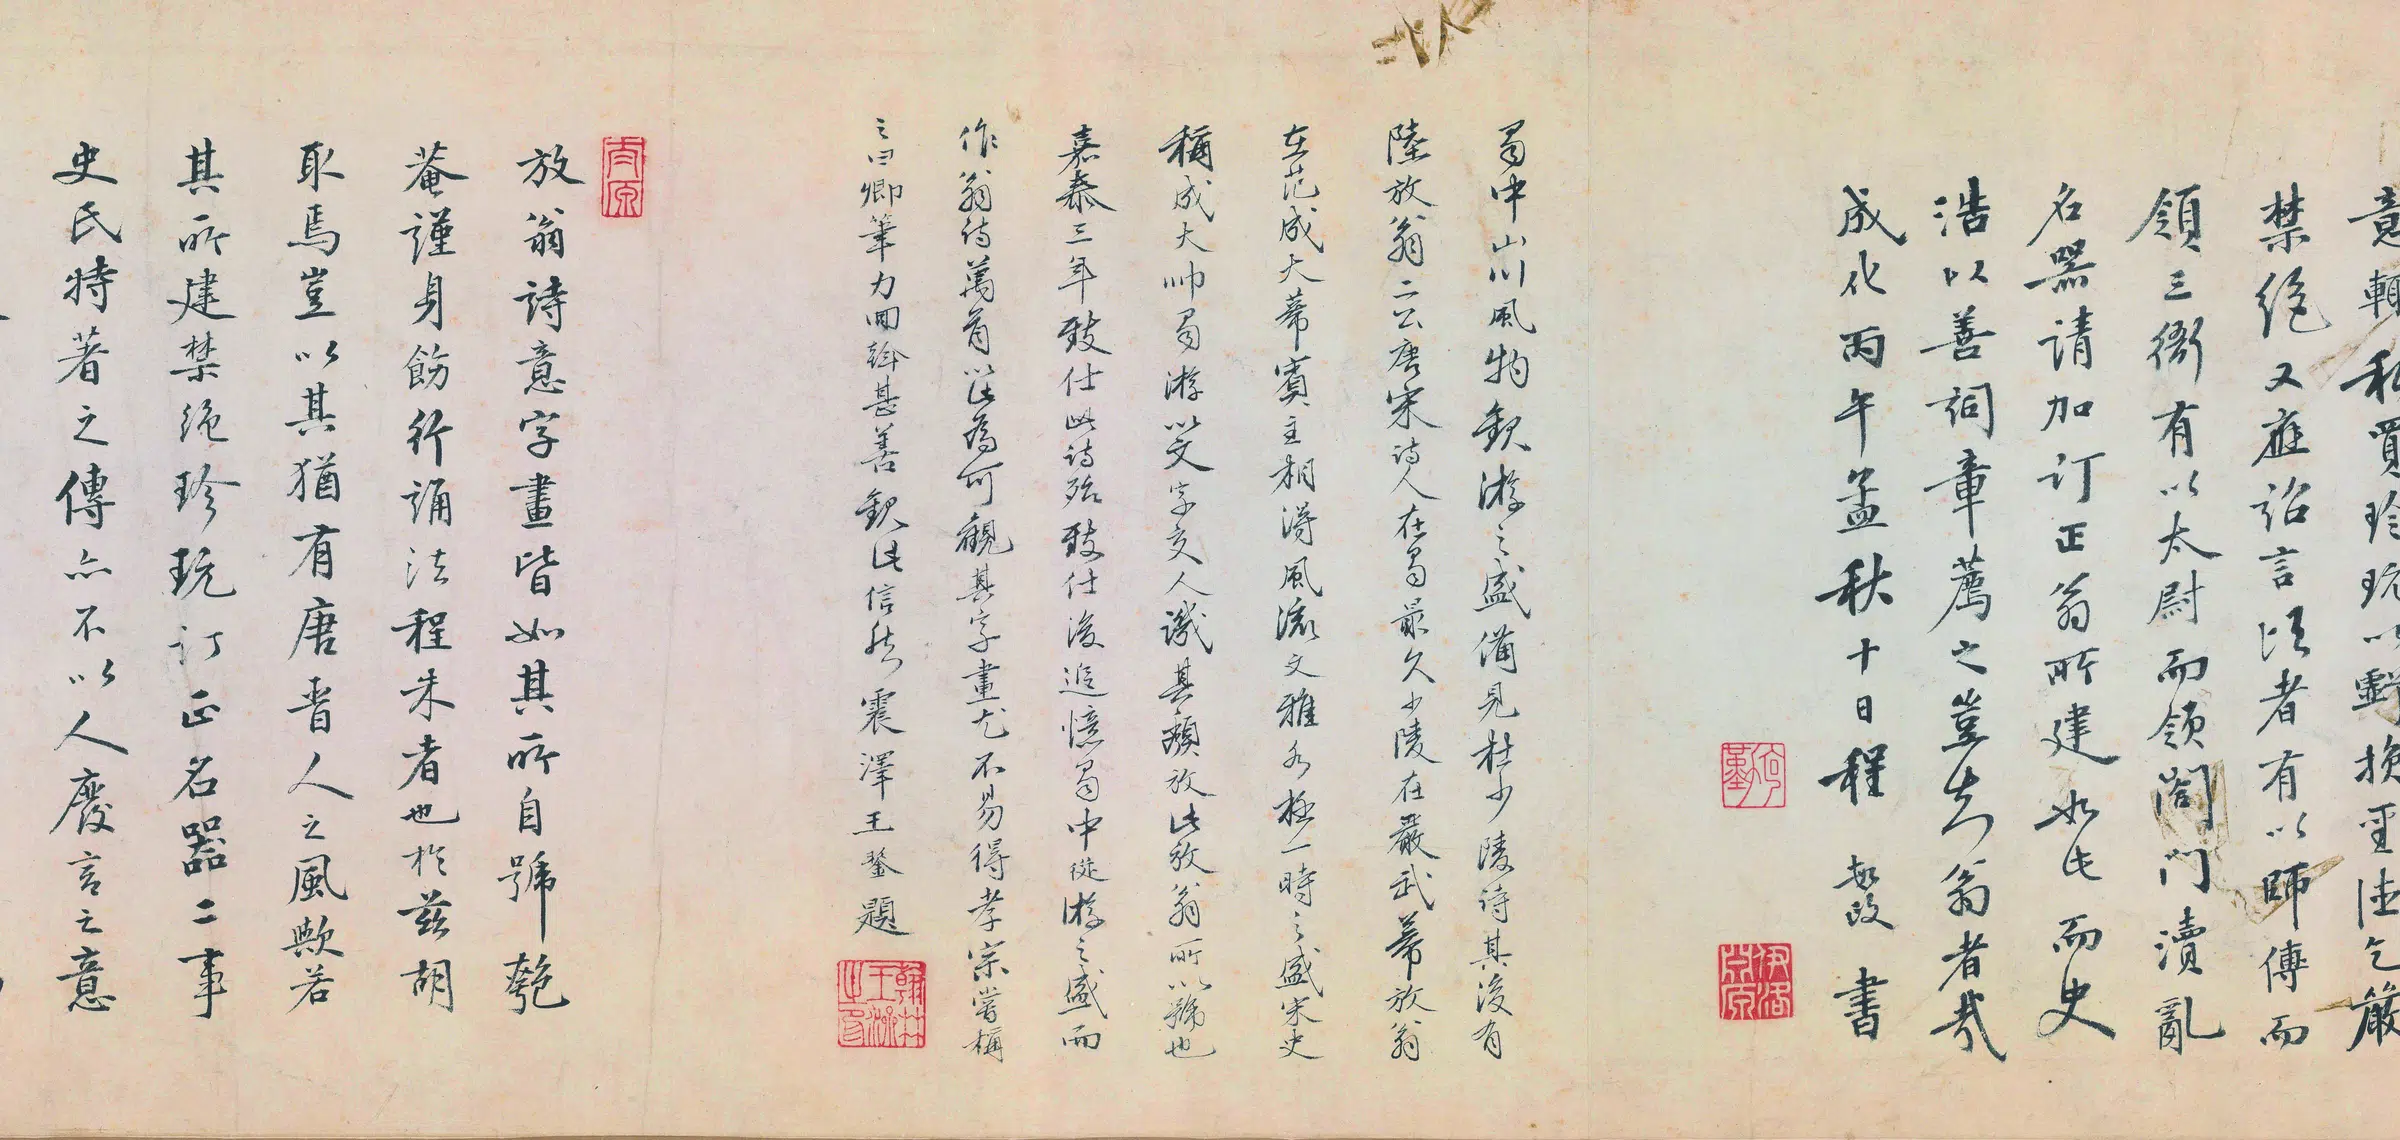 意輒私買珍玩以虧損聖德乞嚴
禁絕又應詔言頃者有以師傅而
領三衙有以太尉而領閤門瀆亂
名器請加訂正翁所建如此而史
浩以善詞章薦之豈知翁者哉
成化丙午孟秋十日程敏政書
伊洛
蜀中山川風物觀游之盛備見杜少陵詩其後有
陸放翁二公唐宋詩人在蜀最久少陵在嚴武幕放翁
在范成大幕賓主相得風流文雅各極一時之盛宋史
稱成大帥蜀游以文字交人譏其頹放此放翁所以號也
嘉泰三年致仕此詩殆致仕後追憶蜀中從游之盛而
作翁詩萬首此為可觀其字畫尤不易得孝宗嘗稱
之曰卿筆力回斡甚善觀此信然震澤王鏊題
放翁詩意字畫皆如其所自號匏
菴謹身飭行誦法程朱者也於茲胡
取焉豈以其猶有唐晋人之風歟若
其所建禁絕珍玩訂正名器二事
史氏特著之傳亦不以人廢言之意